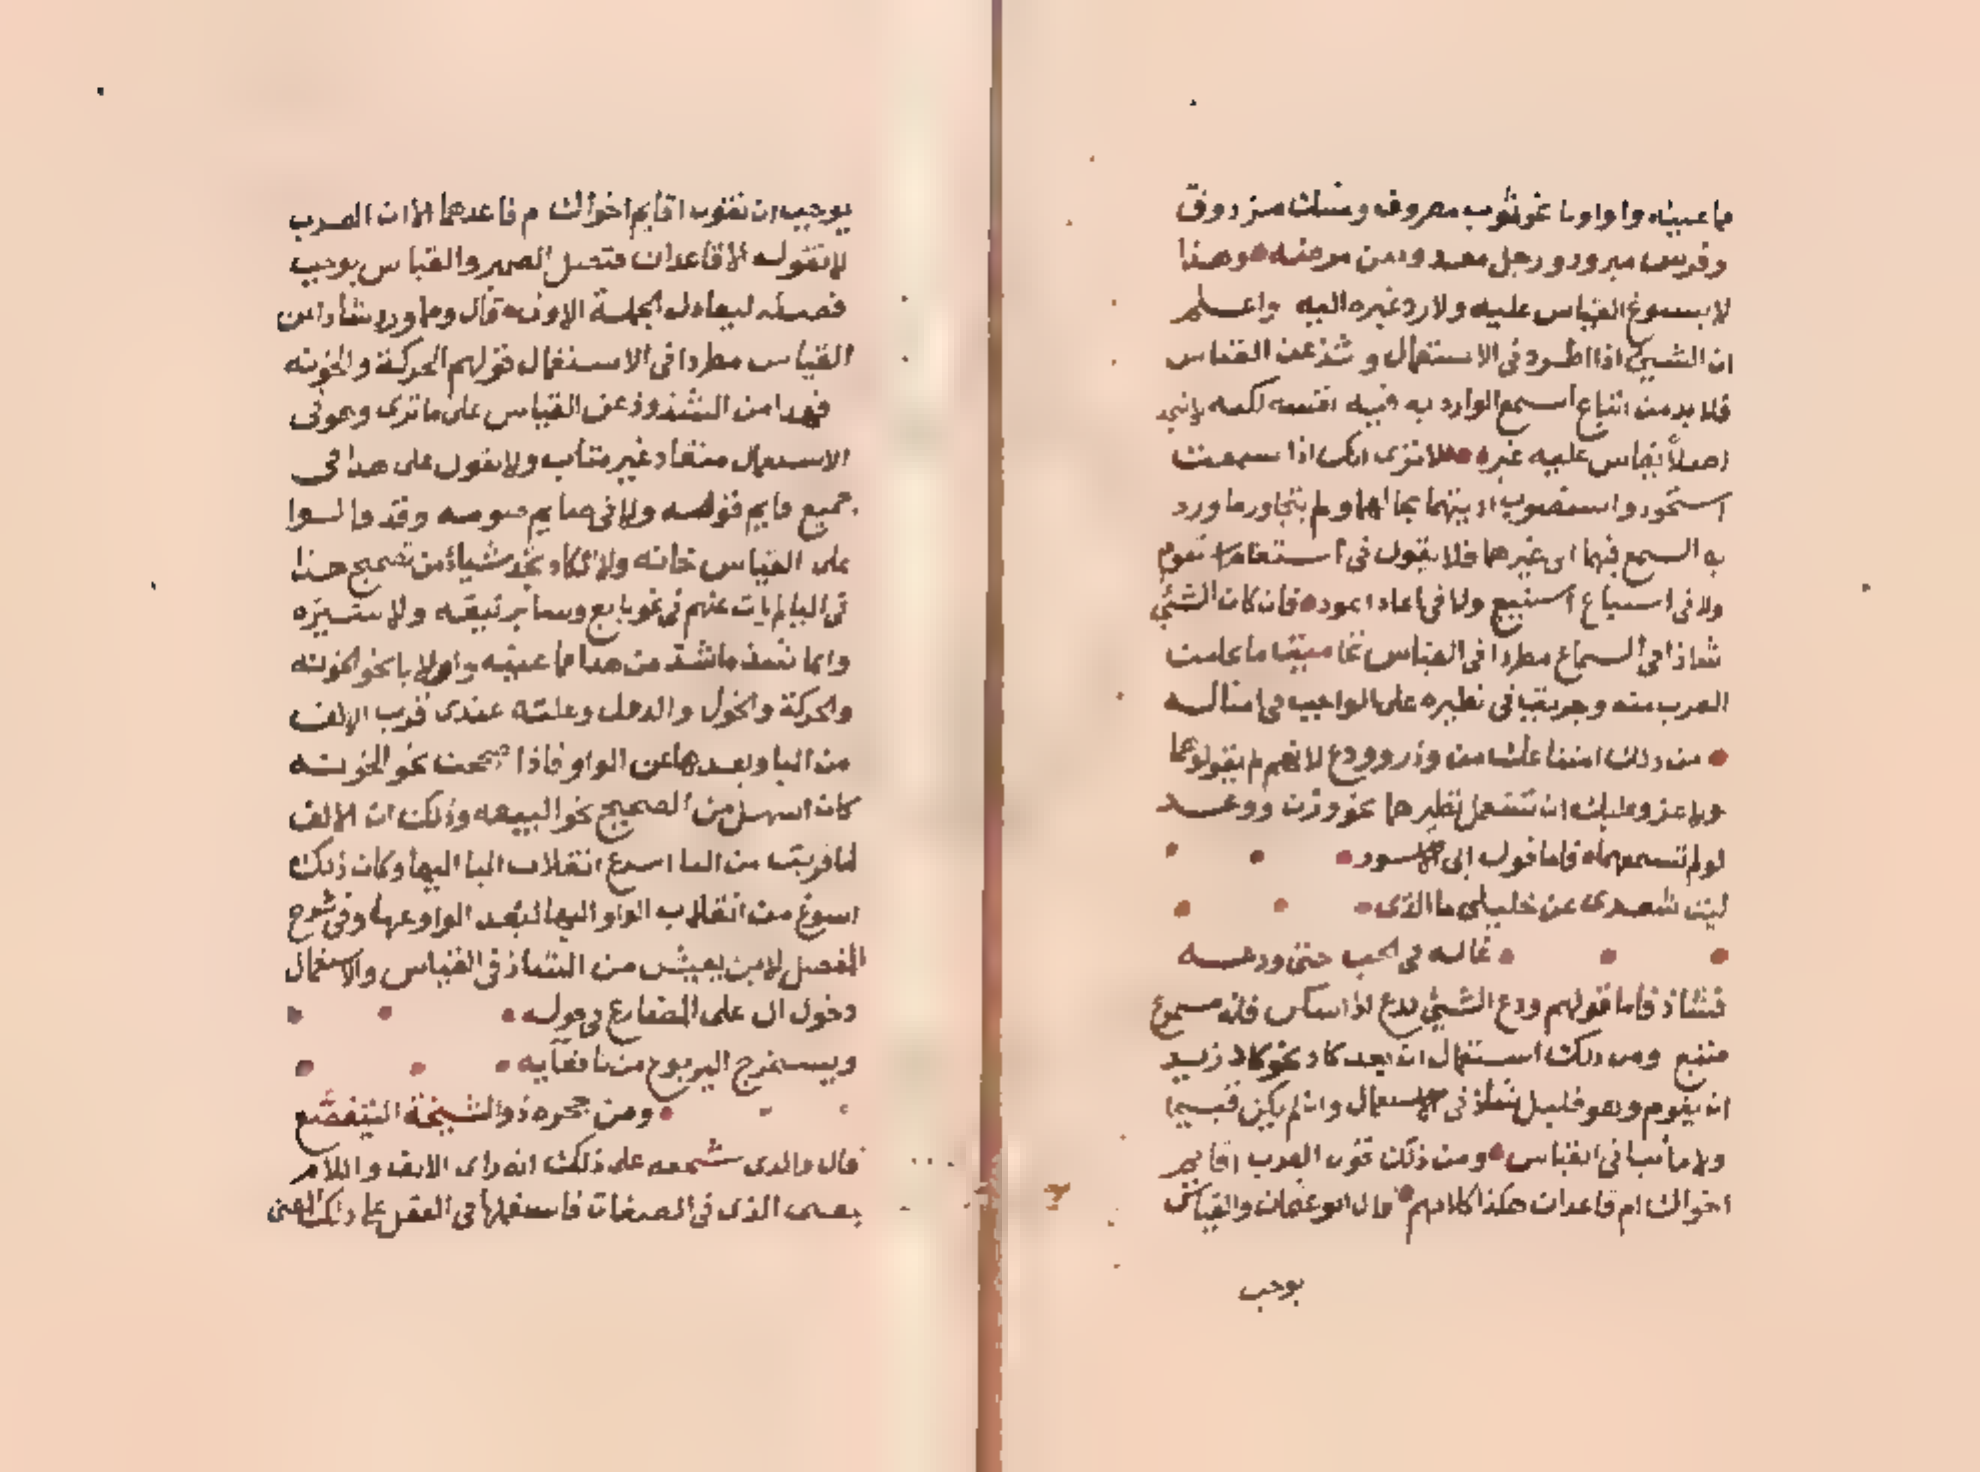 ما عينه واو اوبا نحو ثوب مصووف ومسك مزووق
وفرس مبرود ورجل معدود من مرضه وهذا
لا يسوغ القياس عليه ولا رد غيره اليه واعلم
ان الشيئ اذا اطرد فى الاستعمال وشذ عن القياس
فلا بد من اتباع السمع الوارد به فيه نفسه لكنه لا يتخذ
اصلا يقاس عليه غيره الا ترى انك اذا سمعت
استحوذ واستصوب اديتهما بحالهما ولم يتجاوز ما ورد
به السمع فيهما الى غيرهما فلا يقول فى استقام استقوم
ولا فى استباع استبيع ولا فى اعاد اعود فان كان الشئي
شاذا فى السماع مطردا فى القياس تحاميت ما تحامت
العرب منه وجريت فى نظيره على الواجب فى امثاله
من ذلك امتناعك من وذر وودع لانهم لم يقولوهما
ولا غرو عليك ان تستعمل نظيرهما نحو وزن ووعد
لو لم تسمعهما فاما قول ابى الاسود
ليت شعرى عن خليلى ما الذى
غاله فى الحب حتى ودعه
فشاذ فاما قولهم ودع الشيئ يدع اذا سكن فانه مسموع
متبع ومن ذلك استعمال ان بعد كاد نحو كاد زيد
ان يقوم وهو قليل شاذ فى الاستعمال وان لم يكن قبيحا
ولا مأبيا فى القياس ومن ذلك قول العرب اقايم
اخواك ام قاعدان هكذا كلامهم قال ابو عثمان والقياس
يوجب
يوجب ان تقول اقايم اخواك ام قاعدهما الا ان العرب
لا تقوله الا قاعدان فتصل الضمير والقياس يوجب
فصله ليعادل الجملة الاولى قال ومما ورد شاذا عن
القياس مطردا فى الاستعمال قولهم الحركة والخونه
فهذا من الشذوذ عن القياس على ما ترى وهو فى
الاستعمال منقاد غير متأب ولا تقول على هذا فى
جميع قايم قومه ولا فى صايم صومه وقد قالوا
على القياس خانه ولا تكاد تجد شياء من تصحيح هذا
فى اليا لم يات عنهم فى نحو بايع وساير بيعه ولا سيره
وانما شذ ما شذ من هذا مما عينه واو لا يا نحو الخونه
والحركة والخول والدول وعلته عندى قرب الالف
من اليا وبعدها عن الواو فاذا صحت نحو الخونه
كان اسهل من تصحيح نحو البيعه وذلك ان الالف
لما قربت من اليا اسرع انقلاب اليا اليها وكان ذلك
اسوغ من انقلاب الواو اليها لبعد الواو عنها وفى شرح
المفصل لابن يعيش من الشاذ فى القياس والاستعمال
دخول ال على المضارع فى قوله
ويستخرج اليربوع من نافقآيه
ومن جحره ذو الشيخة اليتقصع
قال والذى شجعه على ذلك انه راى الالف واللام
بمعنى الذى فى الصفات فاستعملها فى الفعل على ذلك المعنى